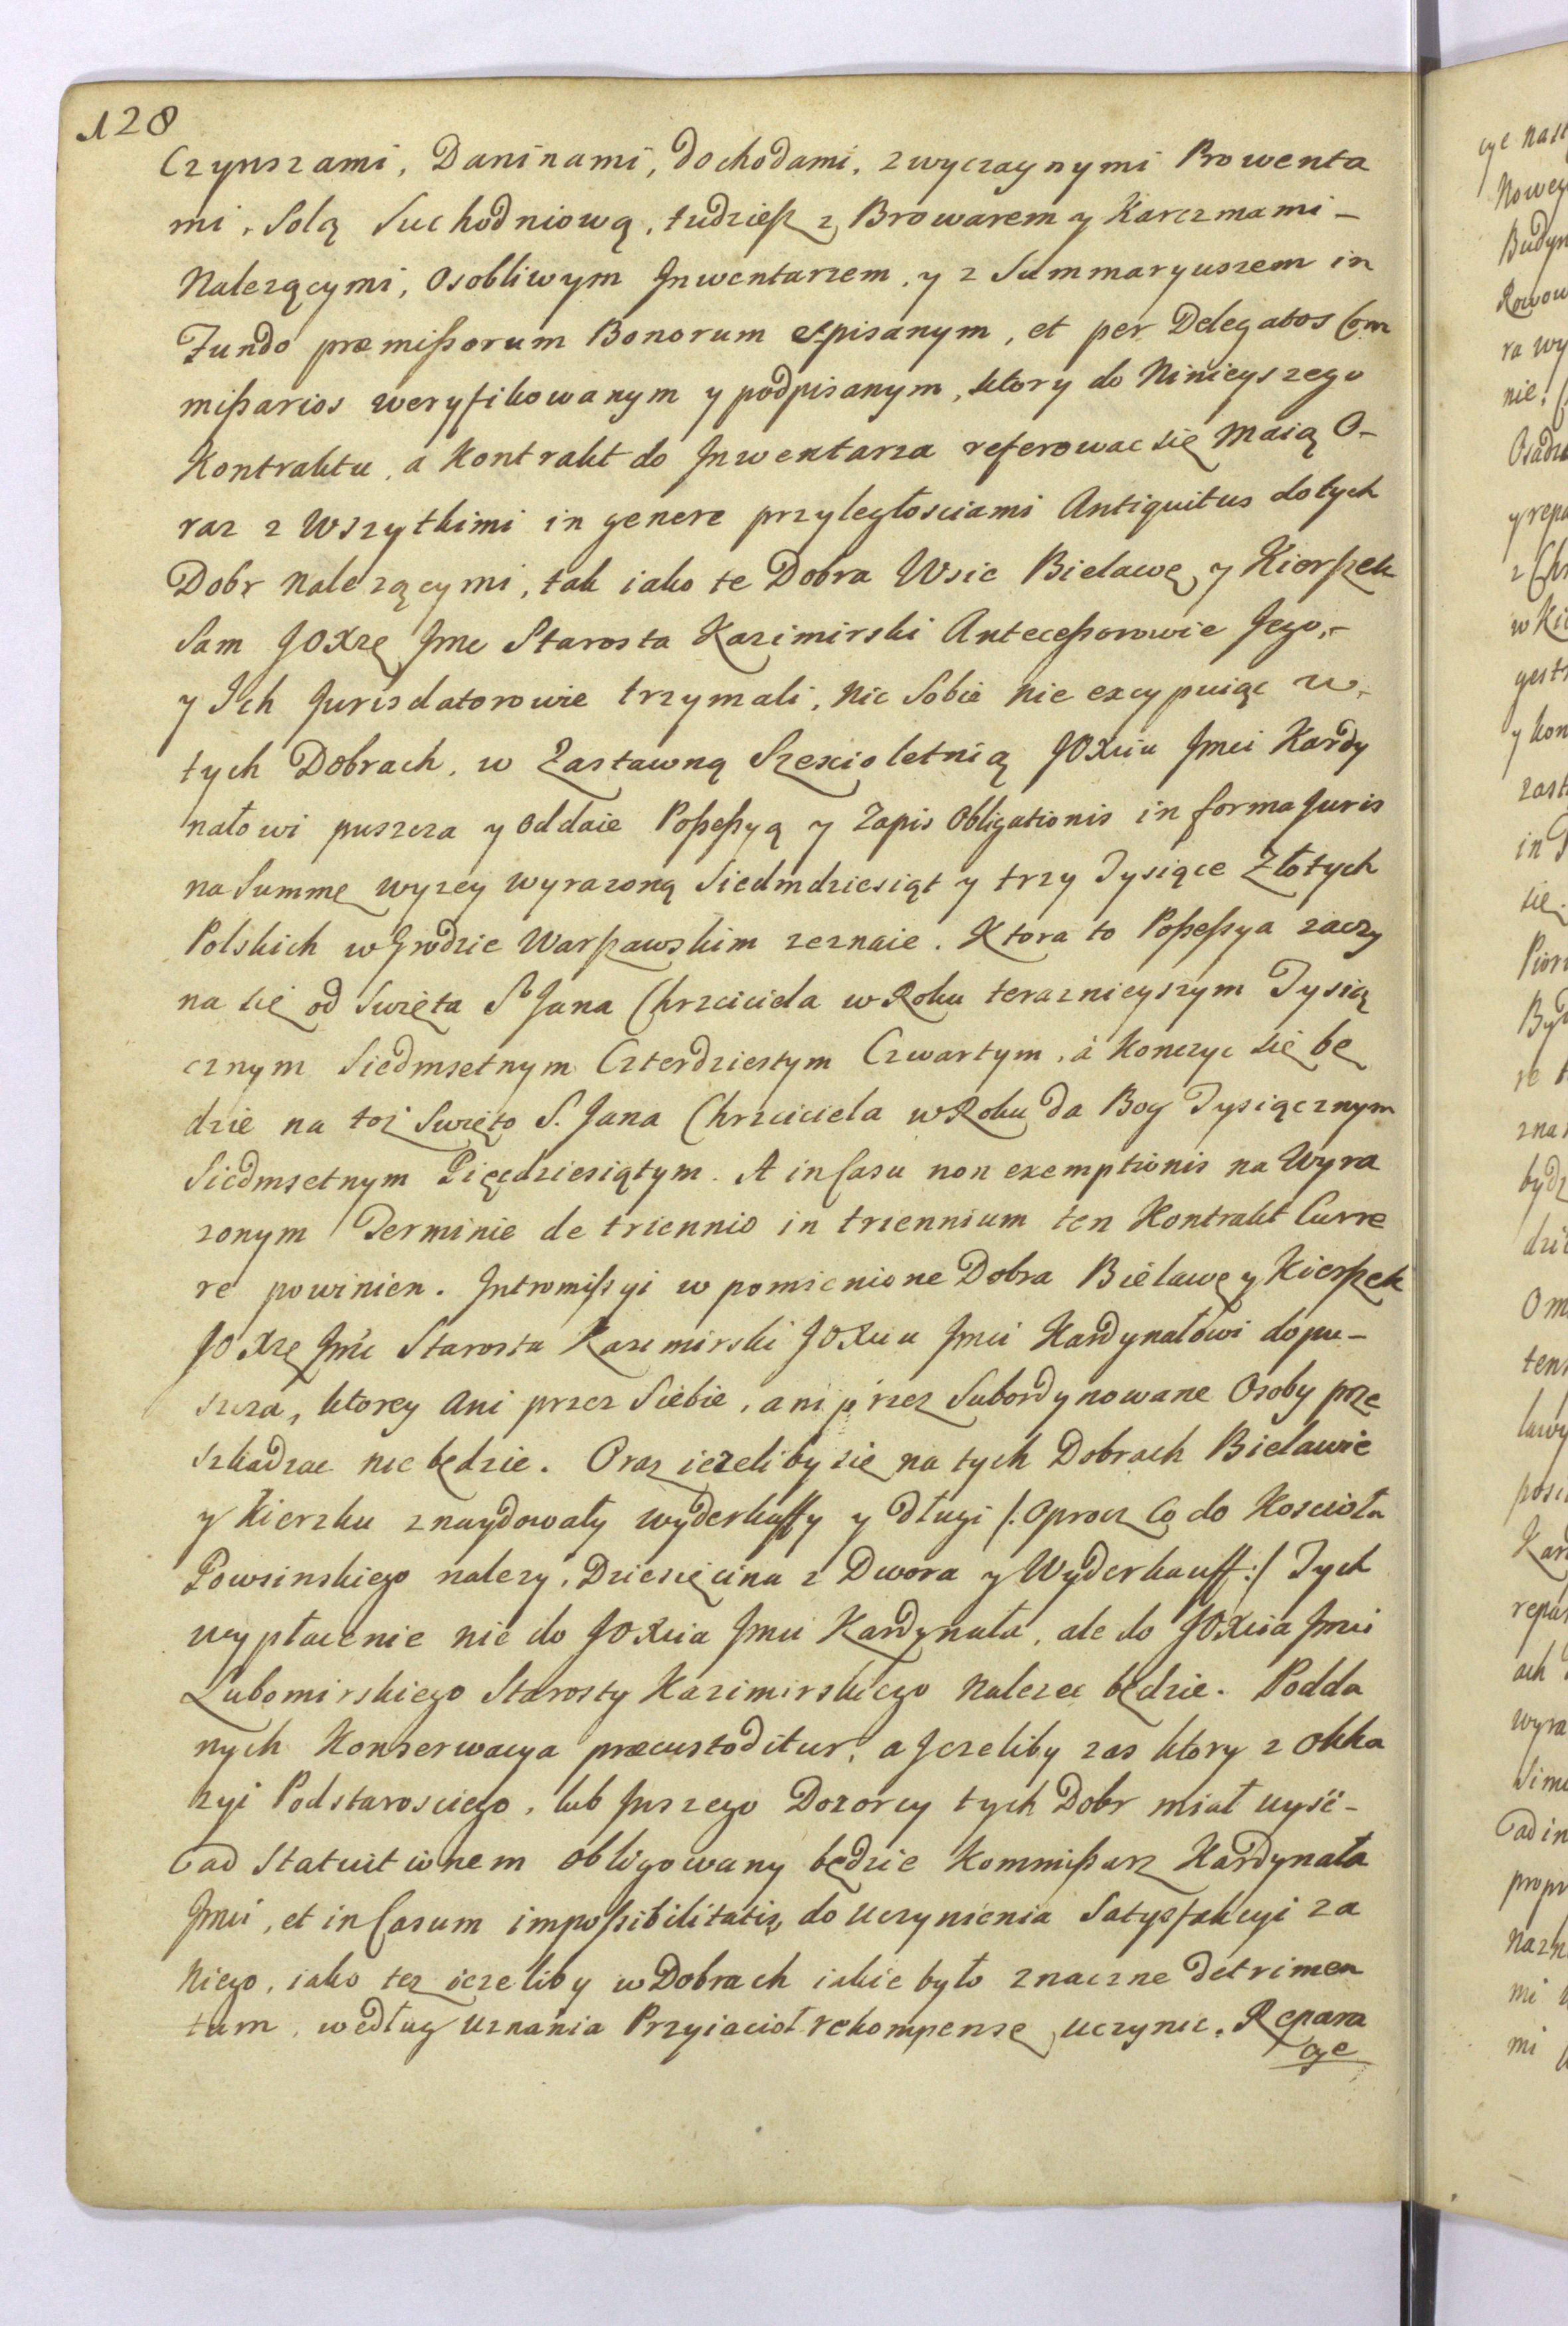 128
Czynszami, Daninami, dochodami, zwyczaynymi Prowenta
mi, Solą Suchodniową, tudzieß z Browarem y Karczmami –
Nalezącymi, Osobliwym Jnwentarzem, y z Summaryuszem in
Fundo præmißorum Bonorum spisanym, et per Delegatos Com
mißarios weryfikowanym y podpisanym, ktory do Ninieyszego
Kontraktu, a Kontrakt do Jnwentarza referowac się Maią O–
raz z Wszytkimi in genere przyległosciami Antiquitus do tych
Dobr Nalezącymi, tak iako te Dobra Wsie Bielawę y Kierßek
Sam JOXże Jmc Starosta Kazimirski Anteceßorowie Jego, –
y Jch Jurisdatorowie trzymali, Nic Sobie nie excypuiąc w
tych Dobrach, w Zastawną Szescioletnią JOXciu Jmci Kardy
nałowi puszcza y Oddaie Poßeßyą y Zapis Obligationis in forma Juris
na Summę wyzey wyrazoną Siedmdziesiąt y trzy Tysiące Złotych
Polskich w Grodzie Warßawskim zeznaie. Ktora to Poßeßya zaczy
na się od Swięta S. Jana Chrzciciela w Roku teraznieyszym Tysią
cznym Siedmsetnym Czterdziestym Czwartym, á Konczyc się bę
dzie na toż Swięto S. Jana Chrzciciela w Roku da Bog Tysiącznym
Siedmsetnym Pięcdziesiątym. A in Casu non exemptionis na Wyra
zonym Terminie de triennio in triennium ten Kontrakt Curre
re powinien. Jntromißyi w pomienione Dobra Bielawę y Kierßek
JOXże Jmc Starosta Kazimirski JOXciu Jmci Kardynałowi dopu–
szcza, ktorey Ani przez Siebie, ani przez Subordynowane Osoby prze
szkadzac nie będzie. Oraz ieżeliby się na tych Dobrach Bielawie
y Kierzku znaydowały wyderkaffy y długi /: oprocz Co do Koscioła
Powsinskiego nalezy, Dziesięcina z Dwora y Wyderkauff :/ Tych
wypłacenie nie do JOXcia Jmci Kardynała, ale do JOXcia Jmci
Lubomirskiego Starosty Kazimirskiego Nalezec będzie. Podda
nych Konserwacya præcustoditur, a Jezeliby zas ktory z Okka
zyi Podstarosciego, lub Jnszego Dozorcy tych Dobr miał uyść –
ad Statuitionem obligowany będzie Kommißarz Kardynała
Jmci, et in Casum impoßibilitatis, do Uczynienia Satysfakcyi za
Niego, iako tez iezeliby w Dobrach iakie było znaczne detrimen
tum, według Uznania Przyiacioł rekompensę Uczynic. Repara
cye